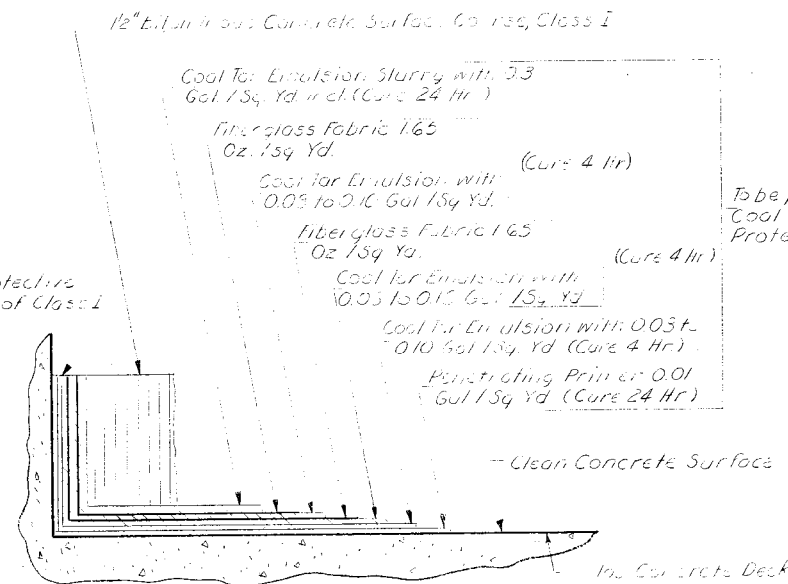 1½" Bituminous Concrete Surface Course, Class I
Coal Tar Emulsion Slurry with 0.3
Gal. / Sq. Yd. incl. (Cure 24 Hr.)
Fiberglass Fabric 1.65
Oz. / Sq Yd.
(Cure 4 Hr)
Coal Tar Emulsion with
0.03 to 0.10 Gal / Sq Yd.
Fiberglass Fabric 1.65
Oz / Sq Yd.
(Cure 4 Hr)
To be
Coal
Prote
Coal Tar Emulsion with
0.03 to 0.10 Gal / Sq Yd
of Class I
Coal Tar Emulsion with 0.03 to
0.10 Gal / Sq. Yd (Cure 4 Hr.)
Penetrating Primer 0.01
Gal / Sq Yd (Cure 24 Hr)
Clean Concrete Surface
Concrete Deck